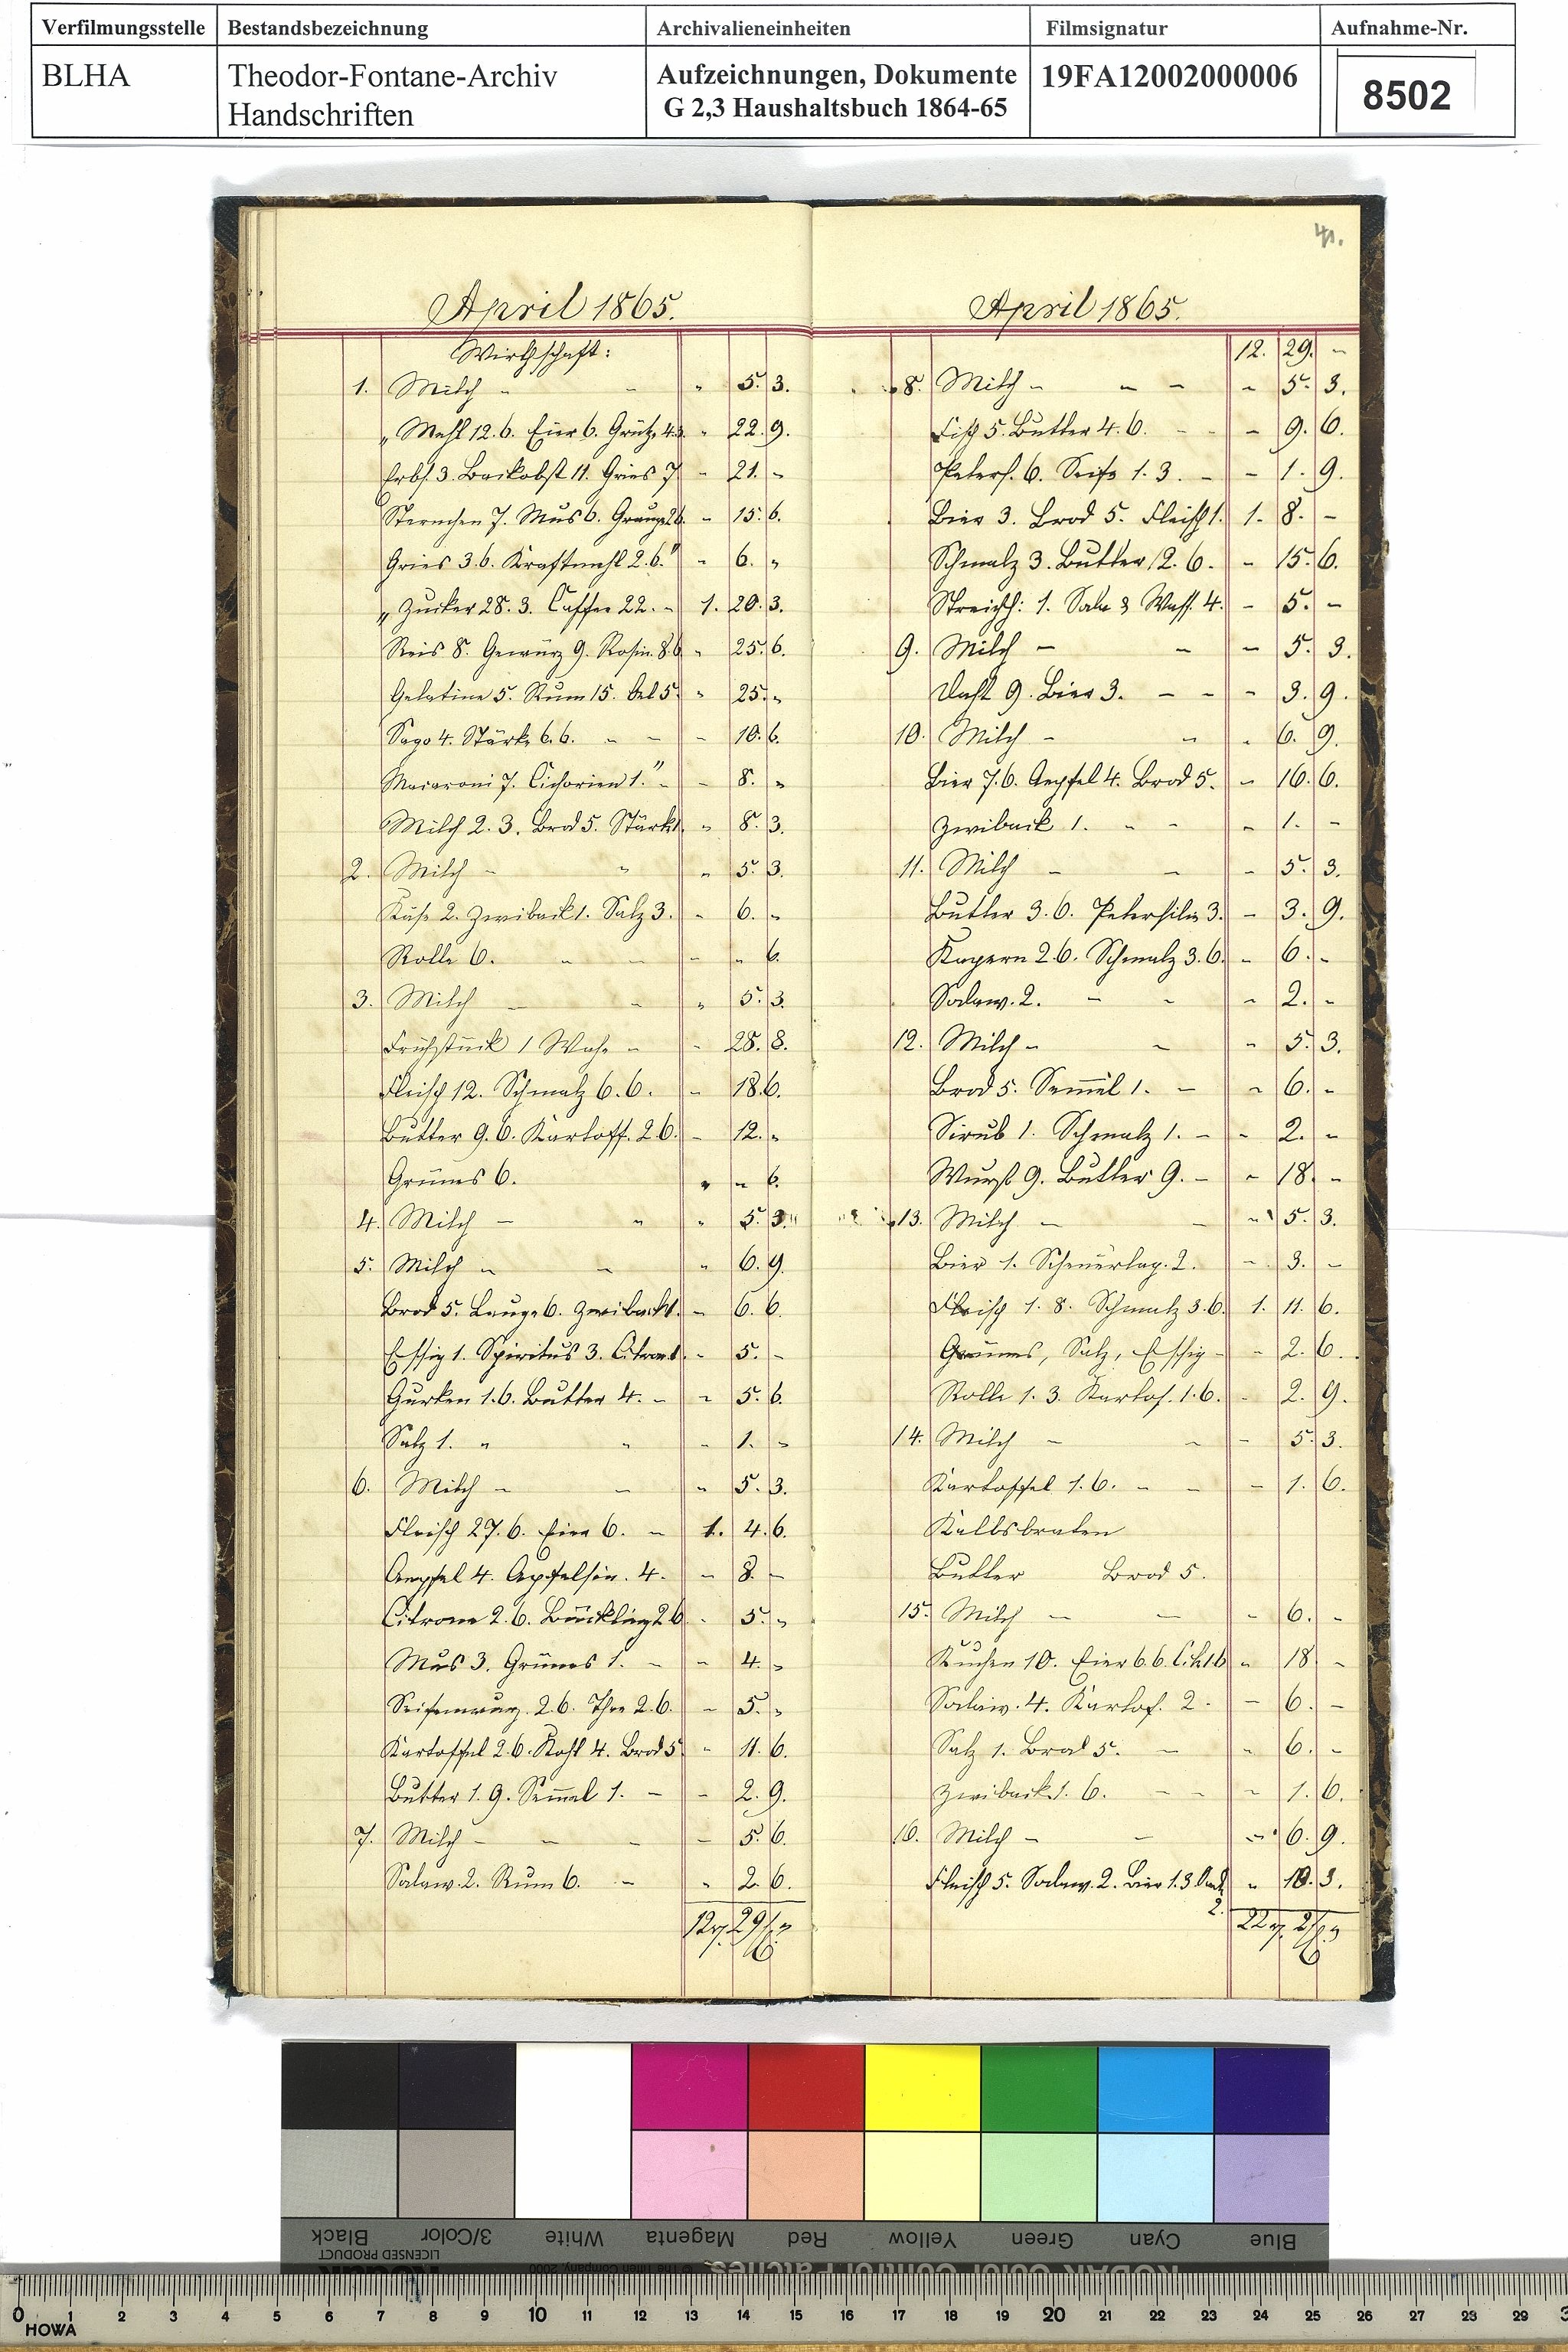 Verfilmungsstelle Bestandsbezeichnung Archivalieneinheiten Filmsignatur Aufnahme-Nr.
BLHA Theodor-Fontane-Archiv Handschriften Aufzeichnungen, Dokumente G 2,3 Haushaltsbuch 1864-65 19FA12002000006 8502
April 1865.
Wirthschaft:
1. Milch - - " 5. 3.
" Mehl 12.6. Eier 6. Grütz. 4.3 - 22. 9.
Erbs. 3. Backobst 11. Gries 7 - 21. -
Sternchen 7. Mus 6. Graupe 2.6. - 15. 6.
Gries 3.6. Kraftmehl 2.6." - 6. "
" Zucker 28. 3. Caffee 22. - 1. 20. 3.
Reis 8. Gewürz 9. Rosin. 8.6 - 25. 6.
Gelatine 5. Rum 15. Oel 5. " 25. "
Sago 4. Stärke 6.6. - - - 10. 6.
Macaroni 7. Cichorien 1." - - 8. "
Milch 2. 3. Brod 5. Stärke 1. " 8. 3.
2. Milch - " " 5. 3.
Käse 2. Zwiback 1. Salz 3. - 6. -
Rolle 6. - - - - 6.
3. Milch - - " 5. 3.
Frühstück 1 Woche - - 28. 8.
Fleisch 12. Schmalz 6.6. - 18. 6.
Butter 9.6. Kartoff. 2.6. - 12. "
Grünes 6. " - 6.
4. Milch - " " 5. 3.
5. Milch - - " 6. 9.
Brod 5. Lauge 6. Zwiback 1. - 6. 6.
Essig 1. Spiritus 3. Citron. 1. - 5. -
Gurken 1.6. Butter 4. - - 5. 6.
Salz 1. " " - 1. -
6. Milch - - " 5. 3.
Fleisch 27.6. Eier 6. - 1. 4. 6.
Aepfel 4. Apfelsin. 4. - 8. -
Citrone 2.6. Bückling 2.6 - 5. "
Mus 3. Grünes 1. - - 4. -
Seifenwurz. 2.6. Thee 2.6. - 5. "
Kartoffel 2.6. Kohl 4. Brod 5. - 11. 6.
Butter 1. 9. Semmel 1. - - 2. 9.
7. Milch - - - - 5. 6.
Sodaw. 2. Rum 6. - " 2. 6.
12 29
41.
April 1865.
12. 29. -
8. Milch - - - - 5. 3.
Fisch 5. Butter 4. 6. - - - 9. 6.
Peters. 6. Seife 1. 3. - - 1. 9.
Bier 3. Brod 5. Fleisch 1. 1. 8. -
Schmalz 3. Butter 12. 6. - 15. 6.
Streichh: 1. 4. - 5. -
9. Milch - - - 5. 3.
Docht 9. Bier 3. - - - 3. 9.
10. Milch - - - 6. 9.
Bier 7.6. Aepfel 4. Brod 5. - 16. 6.
Zwiback 1. - - - 1. -
11. Milch - - - 5. 3.
Butter 3. 6. Petersilie 3. - 3. 9.
Kapern 2.6. Schmalz 3.6. - 6. -
Sodaw. 2. - - - 2. -
12. Milch - - - 5. 3.
Brod 5. Semmel 1. - - 6. -
Sirub 1. Schmalz 1. - - 2. -
Wurst 9. Butter 9. - - 18. -
13. Milch - - - 5. 3.
Bier 1. Scheuerlap. 2. - 3. -
Fleisch 1. 8. Schmalz 3.6. 1. 11. 6.
Grünes, Salz, Essig - - 2. 6.
Rolle 1. 3. Kartof. 1.6. - 2. 9.
14. Milch - - - 5. 3.
Kartoffel 1. 6. - - - 1. 6.
Kalbsbraten
Butter Brod 5.
15. Milch - - - 6. -
Kuchen 10. Eier 6.6. Licht 1.6 - 18. -
Sodaw. 4. Kartof. 2. - 6. -
Salz 1. Brod 5. - - 6. -
Zwiback 1. 6. - - - 1. 6.
16. Milch - - - 6. 9.
Fleisch 5. Sodaw. 2. Bier 1.3 2. - 10. 3.
22 2
Black 3/Color White Magenta Red Yellow Green Cyan Blue
LICENSED PRODUCT
Kodak © The Tiffen Company, 2000 KODAK Color Control Patches
0 1 2 3 4 5 6 7 8 9 10 11 12 13 14 15 16 17 18 19 20 21 22 23 24 25 26 27 28 29 3
HOWA